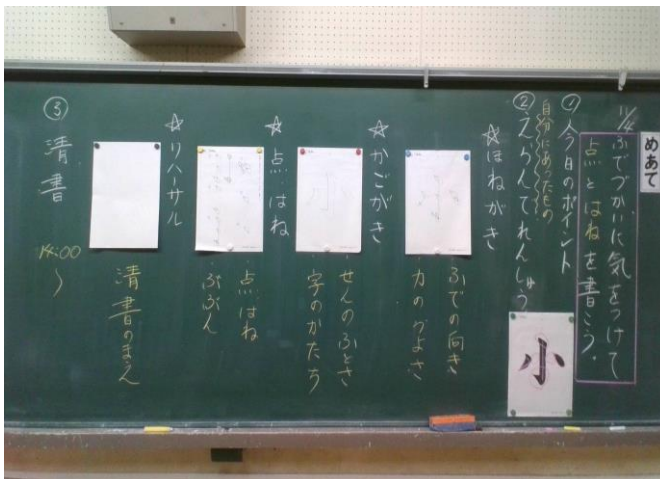 めあて
11/4
ふでづかいに気をつけて
点とはねを書こう。
① 今日のポイント
自分にあったもの
② えらんでれんしゅう
小
☆ほねがき
ふでの向き
力のつよさ
☆かごがき
せんのふとさ
字のかたち
☆点・はね
点・はね
ぶぶん
☆リハーサル
清書のまえ
③ 清書
14:00